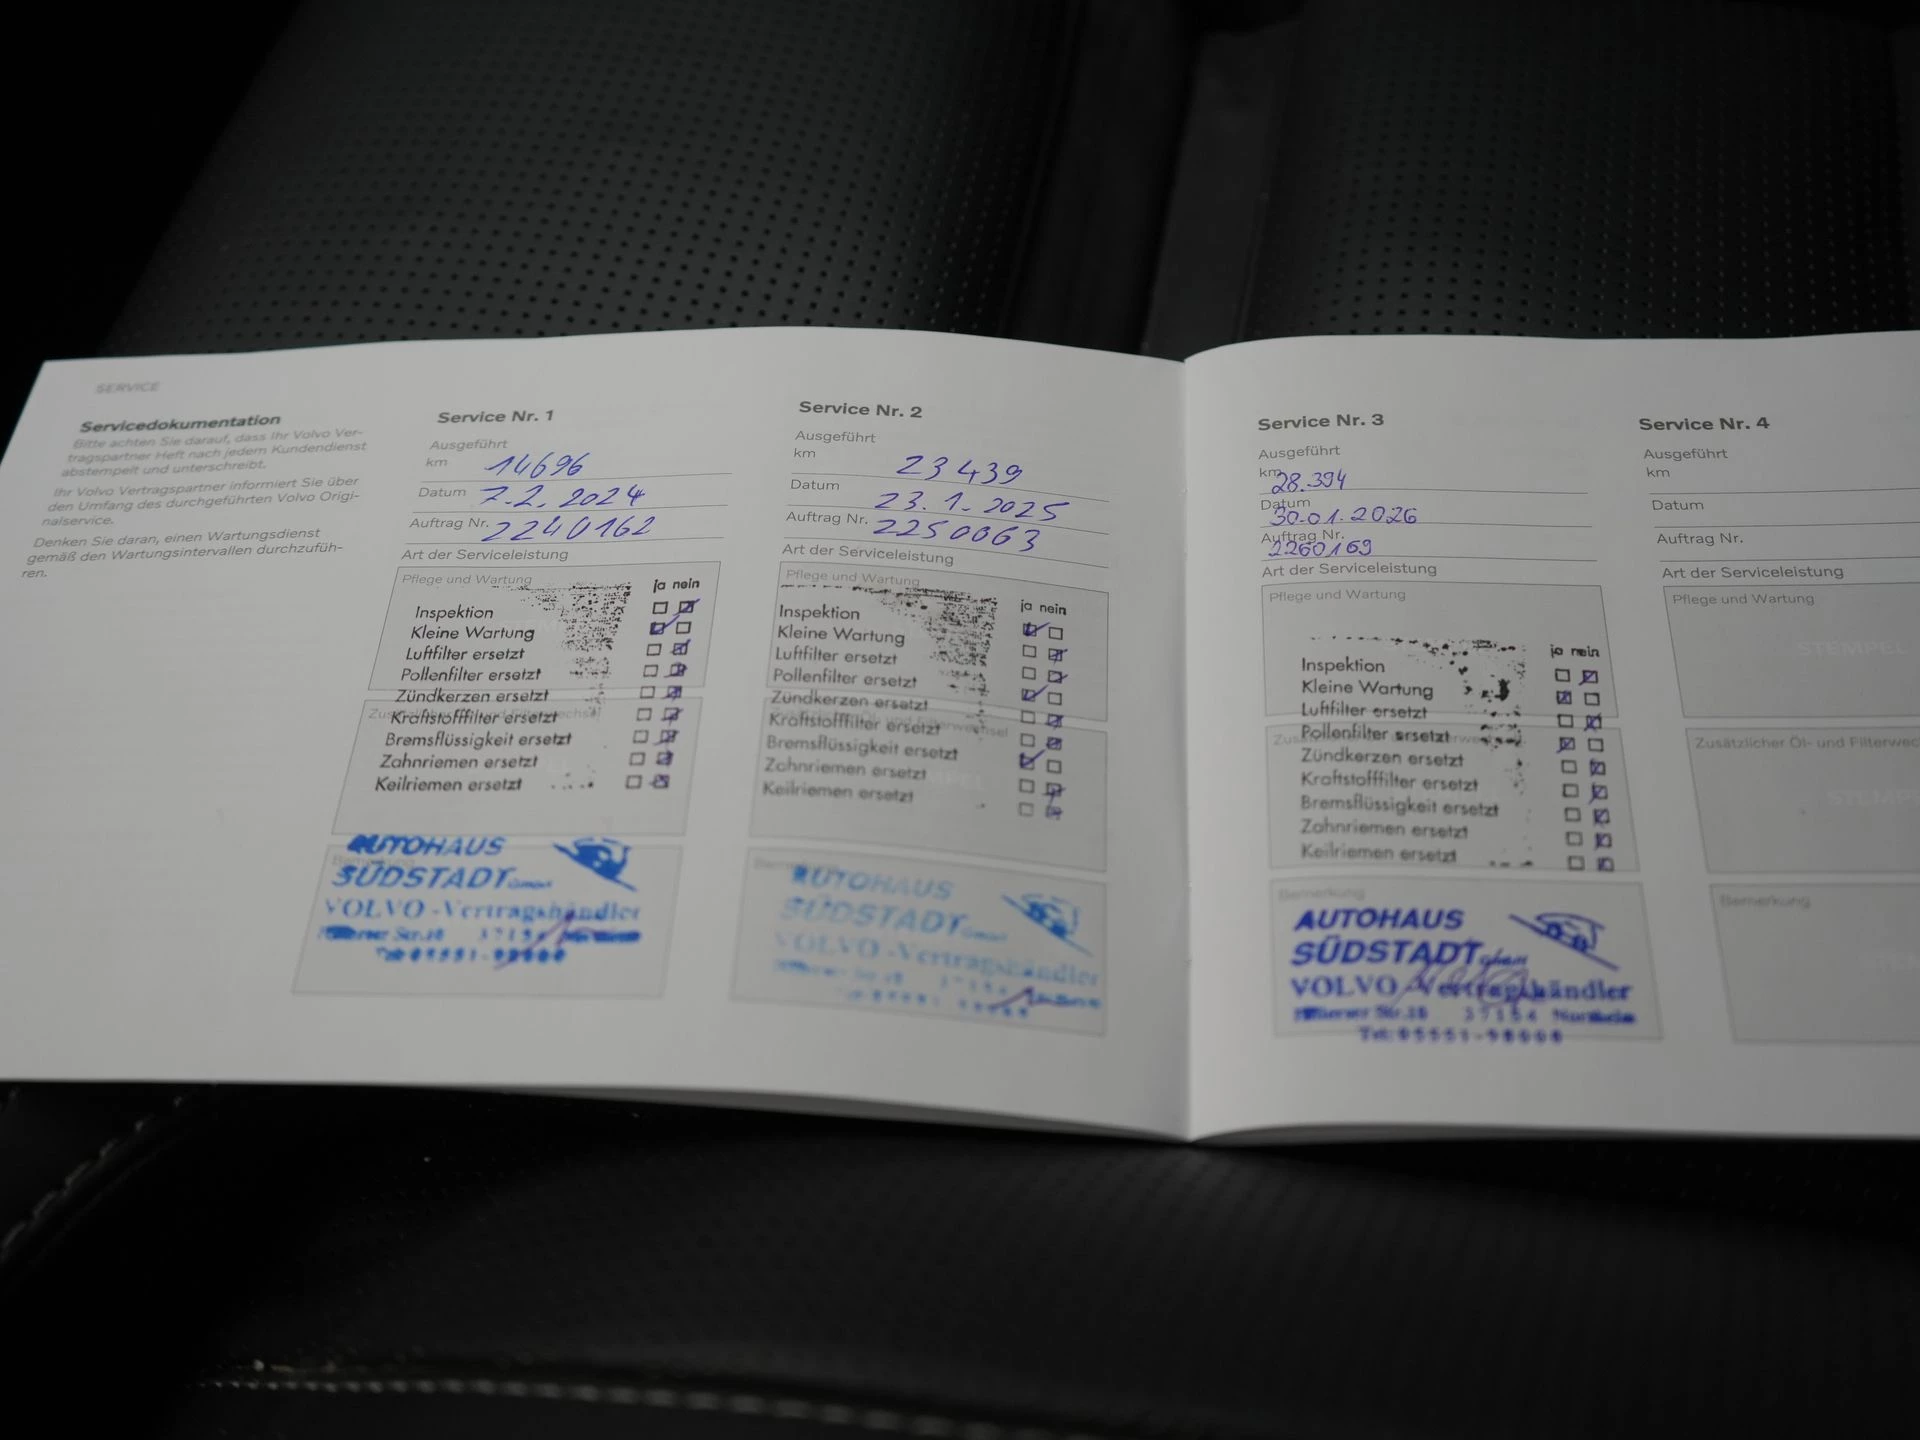 SERVICE
Servicedokumentation
Bitte achten Sie darauf, dass Ihr Volvo Ver-
tragspartner Heft nach jedem Kundendienst
abstempelt und unterschreibt.
Ihr Volvo Vertragspartner informiert Sie über
den Umfang des durchgeführten Volvo Origi-
nalservice.
Denken Sie daran, einen Wartungsdienst
gemäß den Wartungsintervallen durchzufüh-
ren.
Service Nr. 1
Ausgeführt
km 14696
Datum 7.2.2024
Auftrag Nr. 2240162
Art der Serviceleistung
Pflege und Wartung
ja nein
Inspektion
Kleine Wartung
Luftfilter ersetzt
Pollenfilter ersetzt
Zündkerzen ersetzt
Kraftstofffilter ersetzt
Bremsflüssigkeit ersetzt
Zahnriemen ersetzt
Keilriemen ersetzt
Bemerkung
AUTOHAUS
SÜDSTADT GmbH
VOLVO-Vertragshändler
37154
Service Nr. 2
Ausgeführt
km 23439
Datum 23.1.2025
Auftrag Nr. 2250063
Art der Serviceleistung
Pflege und Wartung
ja nein
Inspektion
Kleine Wartung
Luftfilter ersetzt
Pollenfilter ersetzt
Zündkerzen ersetzt
Kraftstofffilter ersetzt
Bremsflüssigkeit ersetzt
Zahnriemen ersetzt
Keilriemen ersetzt
AUTOHAUS
SÜDSTADT GmbH
VOLVO-Vertragshändler
Service Nr. 3
Ausgeführt
km 28.394
Datum
30.01.2026
Auftrag Nr.
2260169
Art der Serviceleistung
Pflege und Wartung
ja nein
Inspektion
Kleine Wartung
Luftfilter ersetzt
Pollenfilter ersetzt
Zündkerzen ersetzt
Kraftstofffilter ersetzt
Bremsflüssigkeit ersetzt
Zahnriemen ersetzt
Keilriemen ersetzt
Bemerkung
AUTOHAUS
SÜDSTADT GmbH
VOLVO-Vertragshändler
37154 Northeim
Service Nr. 4
Ausgeführt
km
Datum
Auftrag Nr.
Art der Serviceleistung
Pflege und Wartung
STEMPEL
Zusätzlicher Öl- und Filterwec
STEMPE
Bemerkung